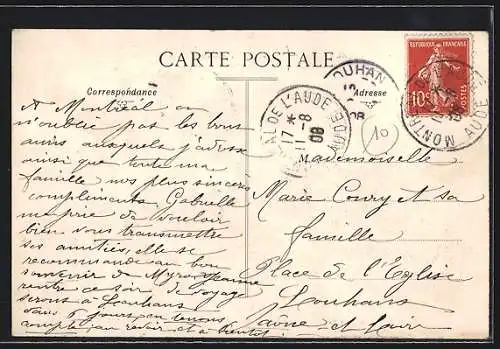 CARTE POSTALE
Correspondance
Adresse
REPUBLIQUE FRANÇAISE
10c
POSTES
LOUHANS
MONTRÉAL DE L'AUDE
AUDE
17 *
11 - 8
08
10
A Montréal on
n'oublie pas les bons
amis auxquels j'adresse
ainsi que toute ma
famille nos plus sincères
compliments. Gabrielle
me prie de vouloir
bien vous transmettre
ses amitiés, elle se
recommande au bon
souvenir de
rentre ce soir de voyage
serons à Louhans
dans 8 jours, en tenons
compte, au revoir et à bientôt.
Mademoiselle
Marie Coury et sa
famille
Place de l'Eglise
Louhans
Saône et Loire